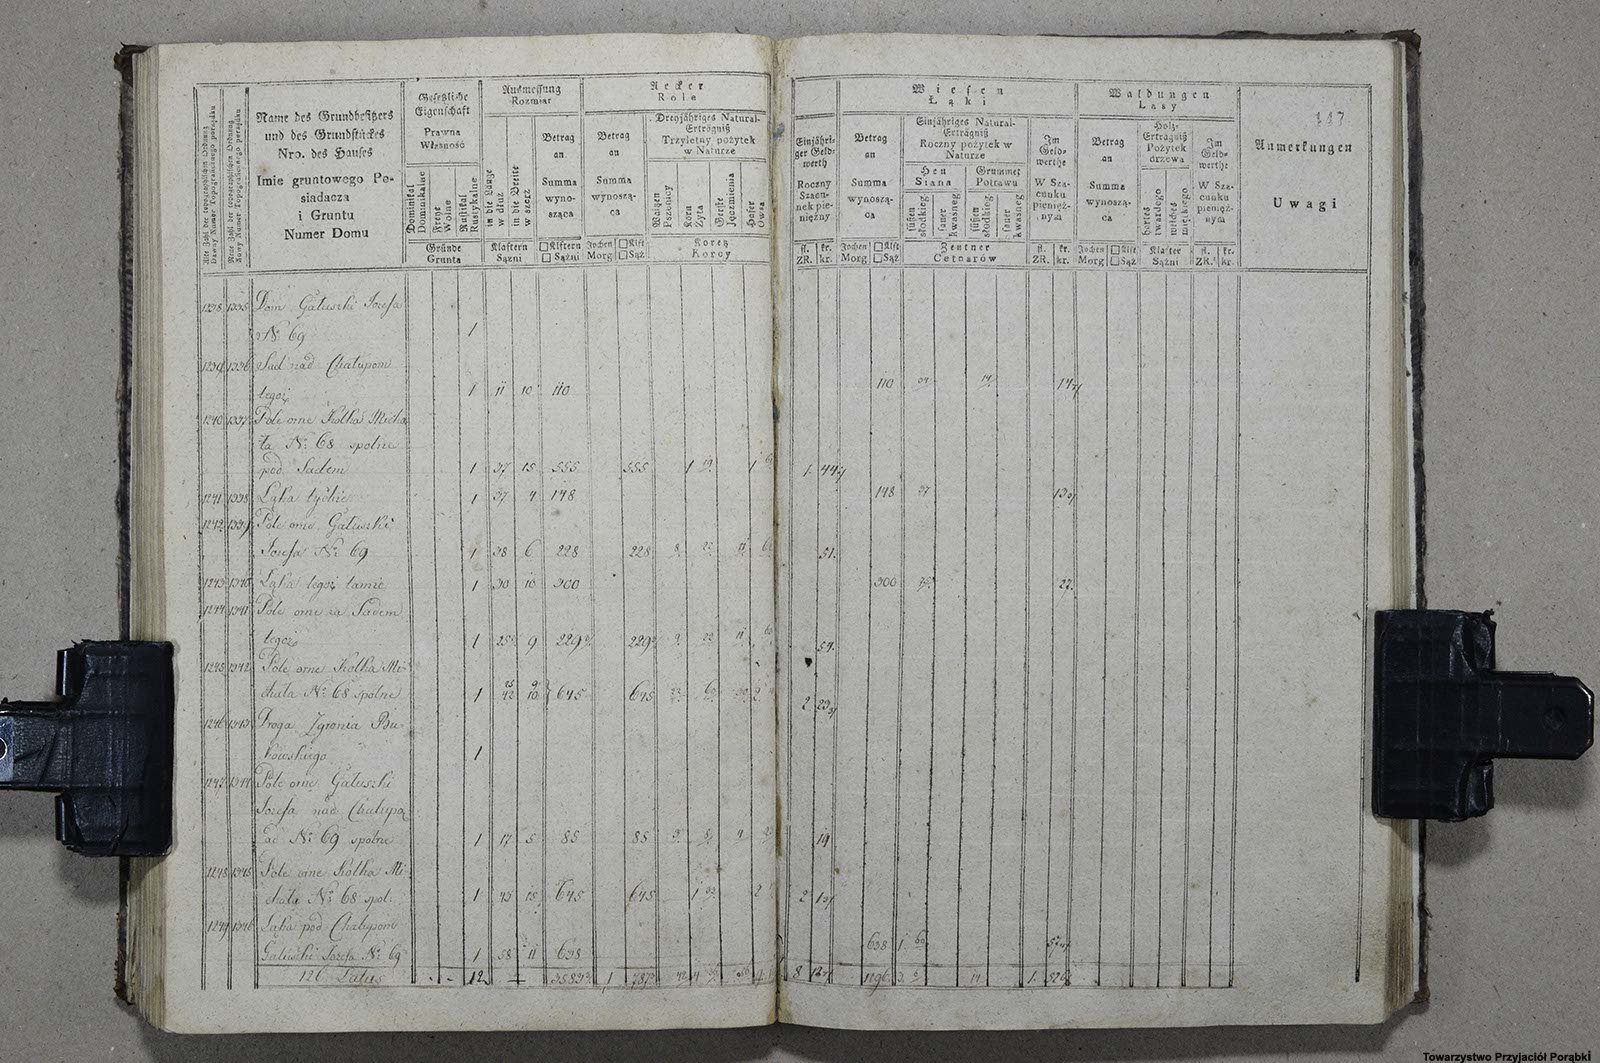 Alte Zahl der topographischen Ordnung
Dawny Numer Topograficznego porządku
Neue Zahl der topographischen Ordnung
Nowy Numer Topograficznego porządku
Name des Grundbesitzers
und des Grundstückes
Nro. des Hauses
Imie gruntowego Po-
siadacza
i Gruntu
Numer Domu
Gesetzliche
Eigenschaft
Prawna
Własność
Dominikal
Dominikalne
Freye
Wolne
Rustikal
Rustykalne
Gründe
Grunta
Ausmessung
Rozmiar
in die Länge
w dłuż
in die Breite
w szerż
Klaftern
Sążni
Betrag
an
Summa
wyno-
sząca
□Klftern
□ Sążni
Aecker
Role
Betrag
an
Summa
wynoszą-
ca
Jochen □Klft
Morg □Sąż
Dreyjähriges Natural-
Erträgniß
Trzyletny pożytek
w Naturze
Waizen
Pszenicy
Korn
Żyta
Gerste
Jęczmienia
Hafer
Owsa
Koretz
Korcy
Einjähri-
ger Geld-
werth
Roczny
Szacu-
nek pie-
niężny
fl. kr.
ZR. kr.
Wiesen
Łąki
Betrag
an
Summa
wynoszą-
ca
Jochen □Klft
Morg □Sąż
Einjähriges Natural-
Erträgniß
Roczny pożytek w
Naturze
Heu
Siana
Grummet
Potrawu
süßen
słodkieg
sauer
kwasneg
süßen
słodkieg
sauer
kwasneg
Zentner
Cetnarów
Im
Geld-
werthe
W Sza-
cunku
pienięż-
nym
fl. kr.
ZR. kr.
Waldungen
Lasy
Betrag
an
Summa
wynoszą-
ca
Jochen □Klft
Morg □Sąż
Holz-
Erträgniß
Pożytek
drzewa
hartes
twardego
weiches
miękkiego
Klafter
Sążni
Im
Geld-
werthe
W Sza-
cunku
pienięż-
nym
fl. kr.
ZR. kr.
Anmerkungen
Uwagi
1238 1335 Dom Gałuszki Jozefa
No 69 1
1239 1336 Sad nad Chałupom
tegoż 1 11 10 110 110
1240 1337 Pole orne Kolka Micha
ła No 68 spolne
pod Sadem 1 37 15 555 555
1241 1338 Łąka tychże 1 37 4 148 148
1242 1339 Pole orne Gałuszki
Jozefa No 69 1 38 6 228 228 51
1243 1340 Łąka tegoż tamże 1 30 10 300 300
1244 1341 Pole orne za Sadem
tegoż 1 9 54
1245 1342 Pole orne Kolka Mi-
chała No 68 spolne 1 645 645
1246 1343 Droga Zgronia Bu-
kowskiego 1
1247 1344 Pole orne Gałuszki
Jozefa nad Chałupą
ad No 69 spolne 1 17 5 85 85 19
1248 1345 Pole orne Kolka Mi-
chała No 68 spol. 1 43 15 645 645
1249 1346 Łąka pod Chałupom
Gałuszki Jozefa No 69 1 58 11 638 638
126 Latus 12
Towarzystwo Przyjaciół Porąbki